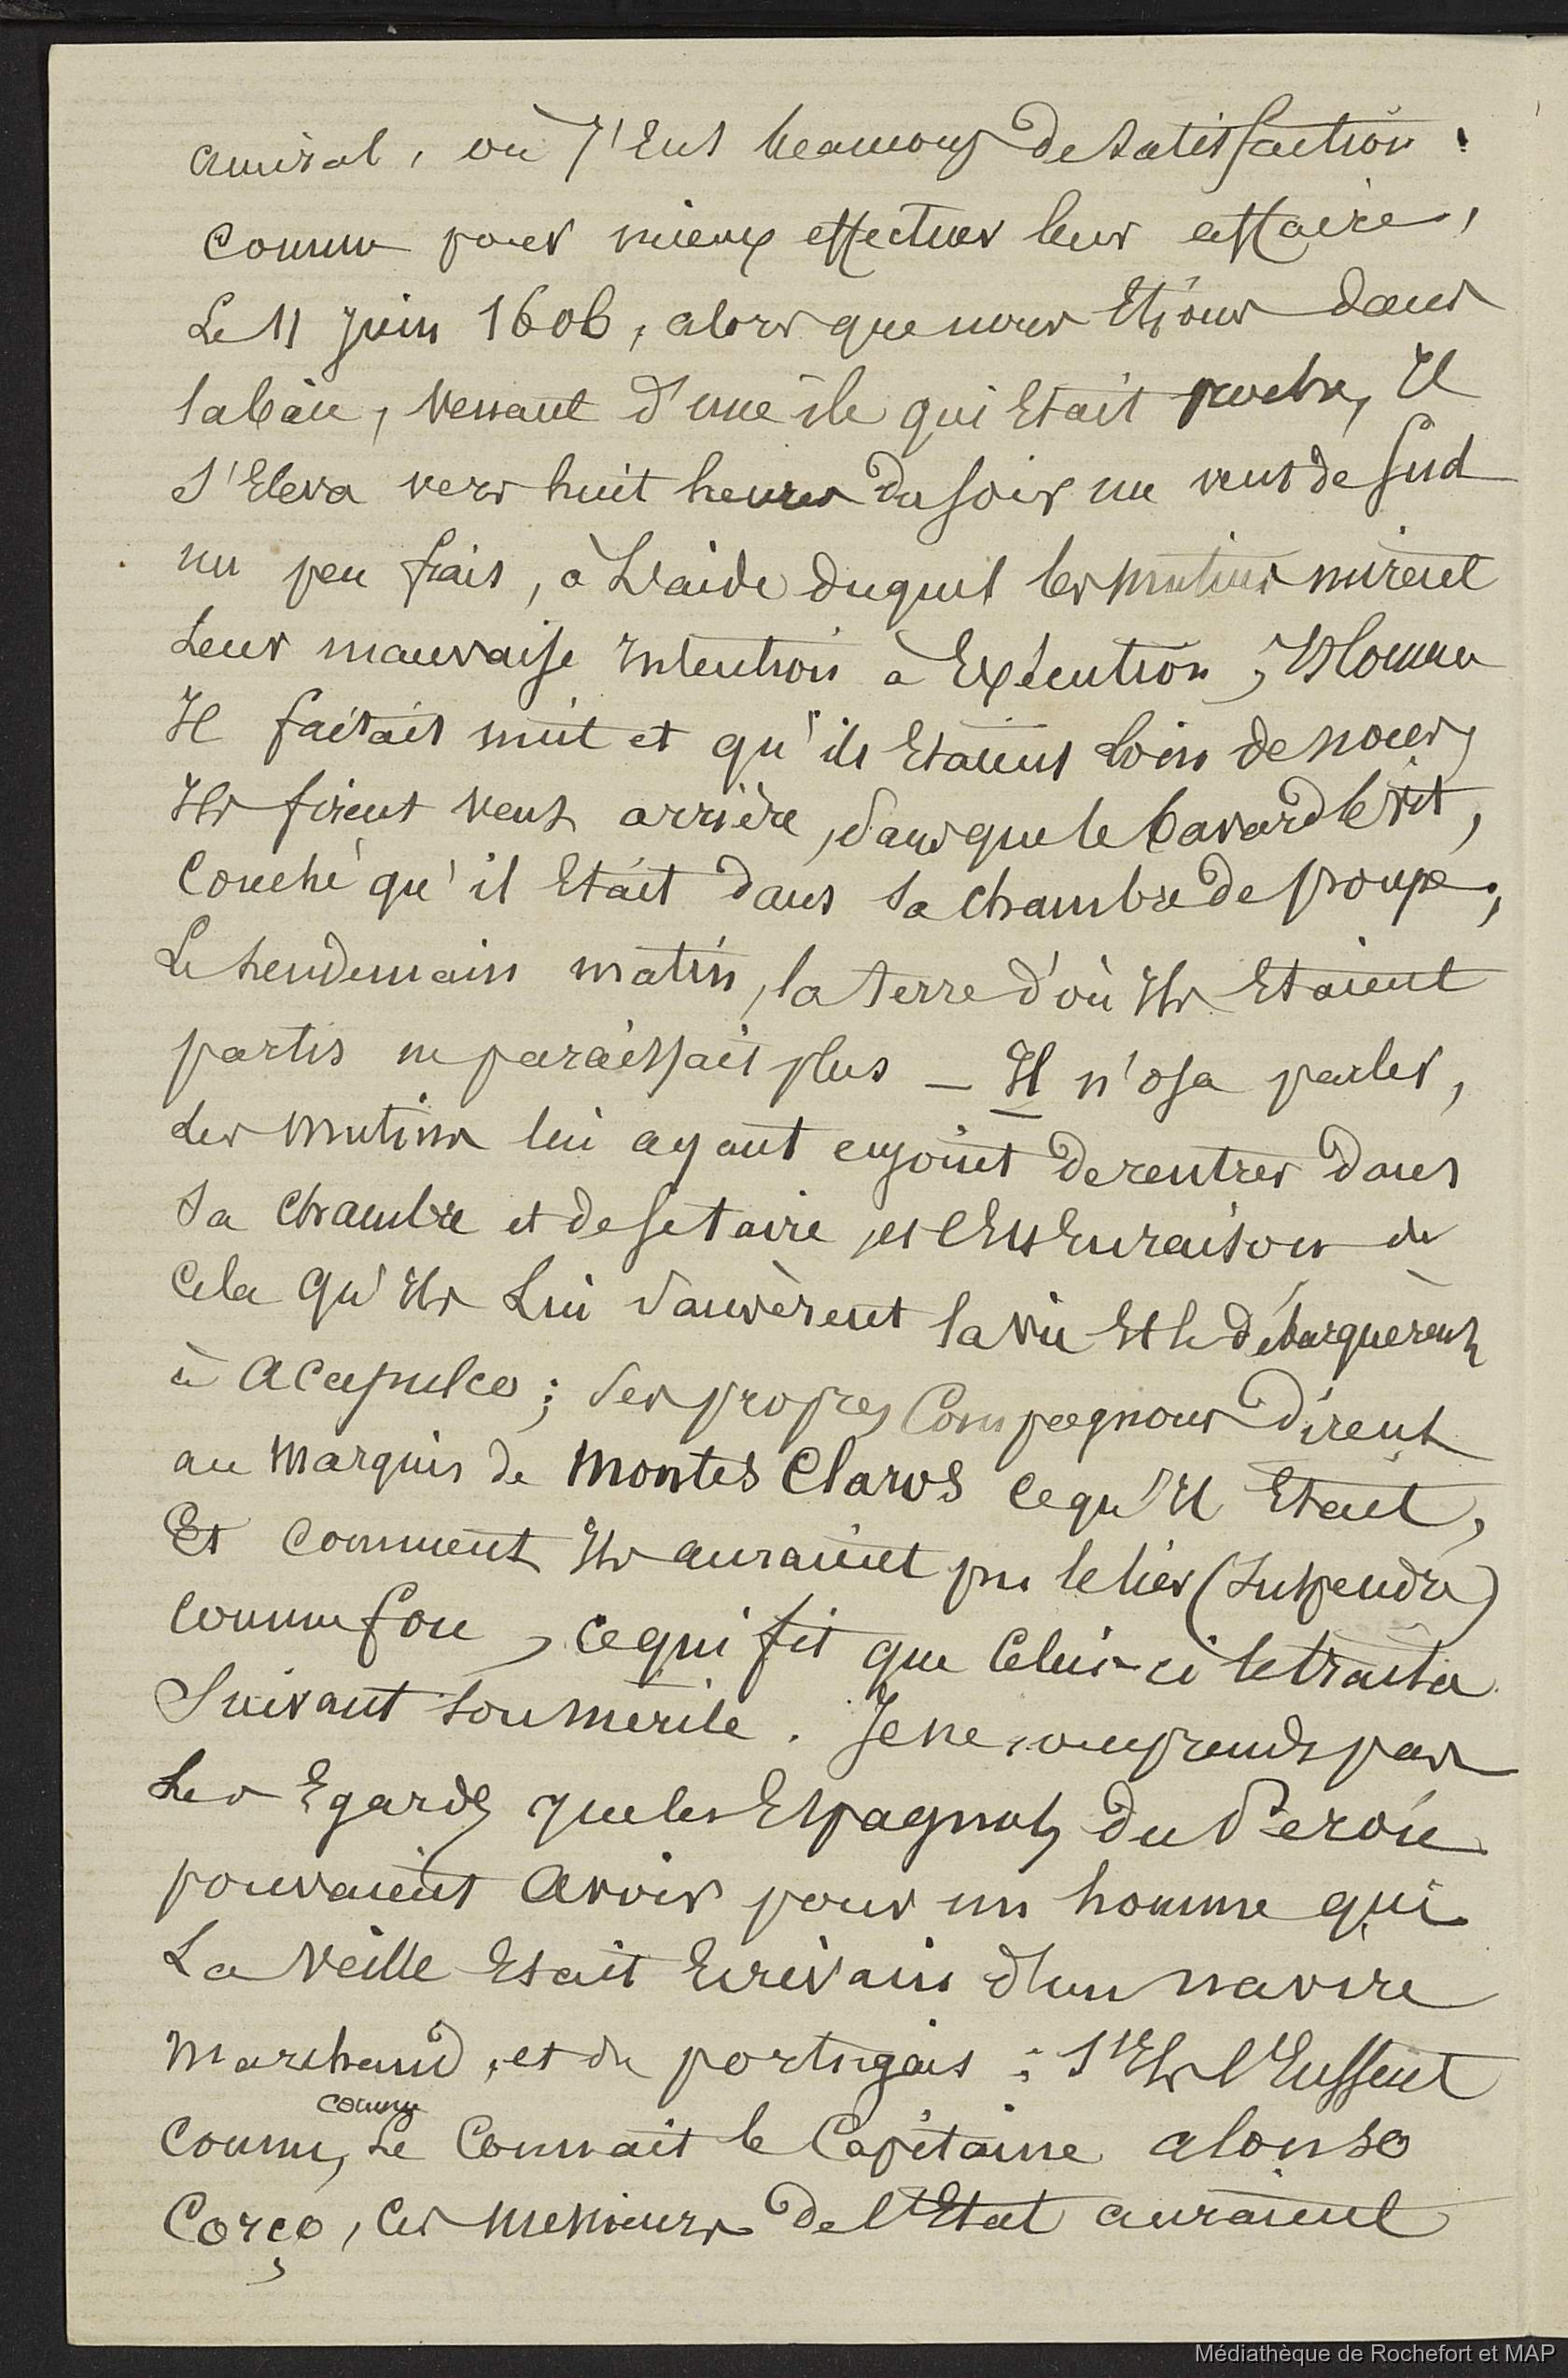 amiral, où j'Eus beaucoup de satisfaction.
comme pour mieux effectuer leur affaire,
Le 11 Juin 1606, alors que nous Etions dans
la baie, venant d'une île qui Etait proche, Il
s'Eleva vers huit heures du soir un vent de Sud
un peu frais, à L'aide duquel les mutins mirent
Leur mauvaise Intention à Exécution, Et Comme
Il faisait nuit et qu'ils Etaient Loin de nous,
Ils firent vent arrière, sans que le bavard le vit,
Couché qu'il Etait dans sa chambre de poupe;
Le Lendemain matin, la terre d'où Ils Etaient
partis ne paraissait plus — Il n'osa parler,
Les mutins lui ayant enjoint de rentrer dans
sa chambre et de se taire, et c'Est En raison de
cela qu'Ils Lui sauvèrent la vie Et le débarquèrent
à Acapulco; ses propres Compagnons dirent
au Marquis de Montes Claros ce qu'Il Etait,
Et comment Ils auraient pu le lier (suspendre)
comme fou, ce qui fit que Celui-ci le traita
Suivant son mérite. Je ne comprends pas
Les Egards que les Espagnols du Pérou
pouvaient avoir pour un homme qui
La veille Etait Ecrivain d'un navire
marchand, et du portugais : s'Ils l'Eussent
comme
connu, Le Connait le Capitaine Alonso
Corço, Ces messieurs de l'Etat auraient
Médiathèque de Rochefort et MAP